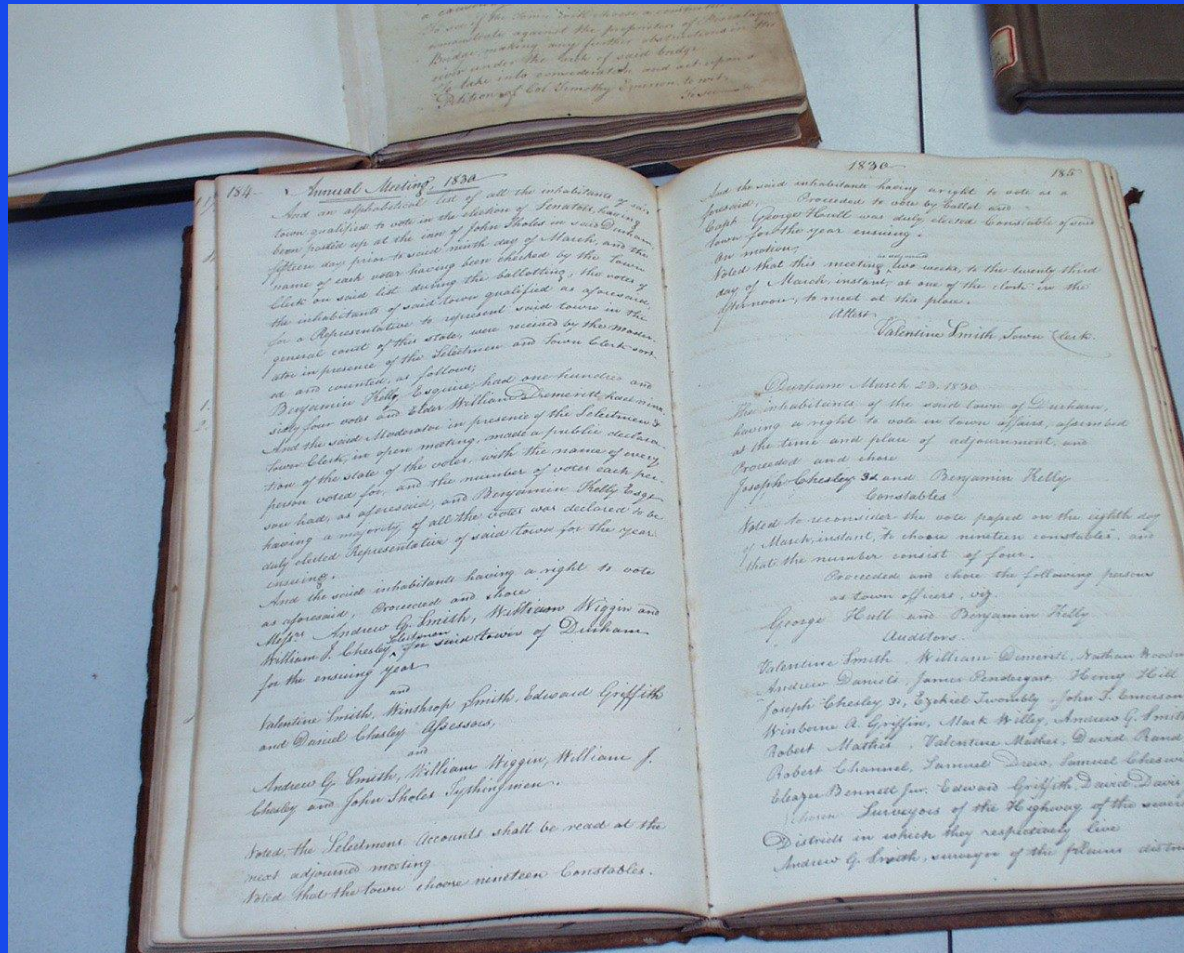 To see if the Town will choose a committee to
remonstrate against the proprietors of Piscataqua
Bridge, making any further obstructions in the
river under the arch of said bridge
To take into consideration, and act upon a
Petition of Col. Timothy Emerson, to wit,
184
Annual Meeting, 1830
And an alphabetical list of all the inhabitants of said
town qualified to vote in the election of Senators, having
been posted up at the inn of John Sholes in said Durham,
fifteen days prior to said ninth day of March, and the
name of each voter having been checked by the Town
Clerk on said list during the ballotting, the votes of
the inhabitants of said town qualified as aforesaid,
for a Representative to represent said town in the
general court of this state, were received by the moder-
ator in presence of the Selectmen and Town Clerk sort-
ed and counted, as follows;
Benjamin Kelly, Esquire, had one hundred and
sixty four votes and Elder William Demeritt, had nine,
And the said Moderator in presence of the Selectmen &
Town Clerk, in open meeting, made a public declara-
tion of the state of the votes, with the name of every
person voted for, and the number of votes each per-
son had, as aforesaid, and Benjamin Kelly Esqr
having a majority of all the votes was declared to be
duly elected Representative of said town for the year
ensuing.
And the said inhabitants having a right to vote
as aforesaid, Proceeded and chose
Messrs. Andrew G. Smith, William Wiggin and
William J. Chesley Selectmen for said town of Durham
for the ensuing year
and
Valentine Smith, Winthrop Smith, Edward Griffith
and Daniel Chesley Assessors,
and
Andrew G. Smith, William Wiggin, William J.
Chesley and John Sholes Tythingmen.
Voted, the Selectmens Accounts shall be read at the
next adjourned meeting
Voted that the town choose nineteen Constables.
1830
185
And the said inhabitants having a right to vote as a
foresaid, Proceeded to vote by ballot and
Capt George Hull was duly elected Constable of said
town for the year ensuing.
On motion,
Voted that this meeting is adjourned two weeks, to the twenty third
day of March, instant, at one of the clock in the
afternoon, to meet at this place.
Attest
Valentine Smith, Town Clerk
Durham March 23, 1830
The inhabitants of the said town of Durham,
having a right to vote in town affairs, assembled
at the time and place of adjournment, and
Proceeded and chose
Joseph Chesley 3d and Benjamin Kelly
Constables
Voted to reconsider the vote passed on the eighth day
of March, instant, to choose nineteen constables, and
that the number consist of four.
Proceeded and chose the following persons
as town officers, viz.
George Hull and Benjamin Kelly
Auditors.
Valentine Smith, William Demeritt, Nathan
Andrew Daniels, James Pendergast, Henry Hill
Joseph Chesley 3d, Ezekiel Twombly, John F. Emerson
Winborne A. Griffin, Mark Willey, Andrew G. Smith
Robert Mathes, Valentine Mathes, David Rand
Robert Channel, Samuel Drew, Samuel
Eleazer Bennett Jur. Edward Griffith, David Davis
chosen Surveyors of the Highway of the several
Districts in which they respectively live
Andrew G. Smith, surveyor of the